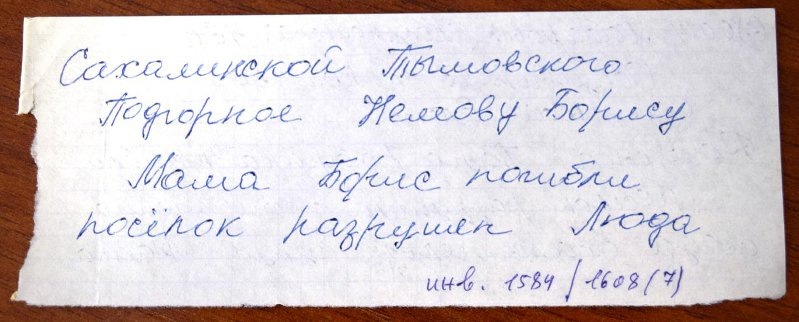 Сахалинской Тымовского
Подгорное Немову Борису
Мама Борис погибли
посёлок разрушен Люда
инв. 1584/1608(7)